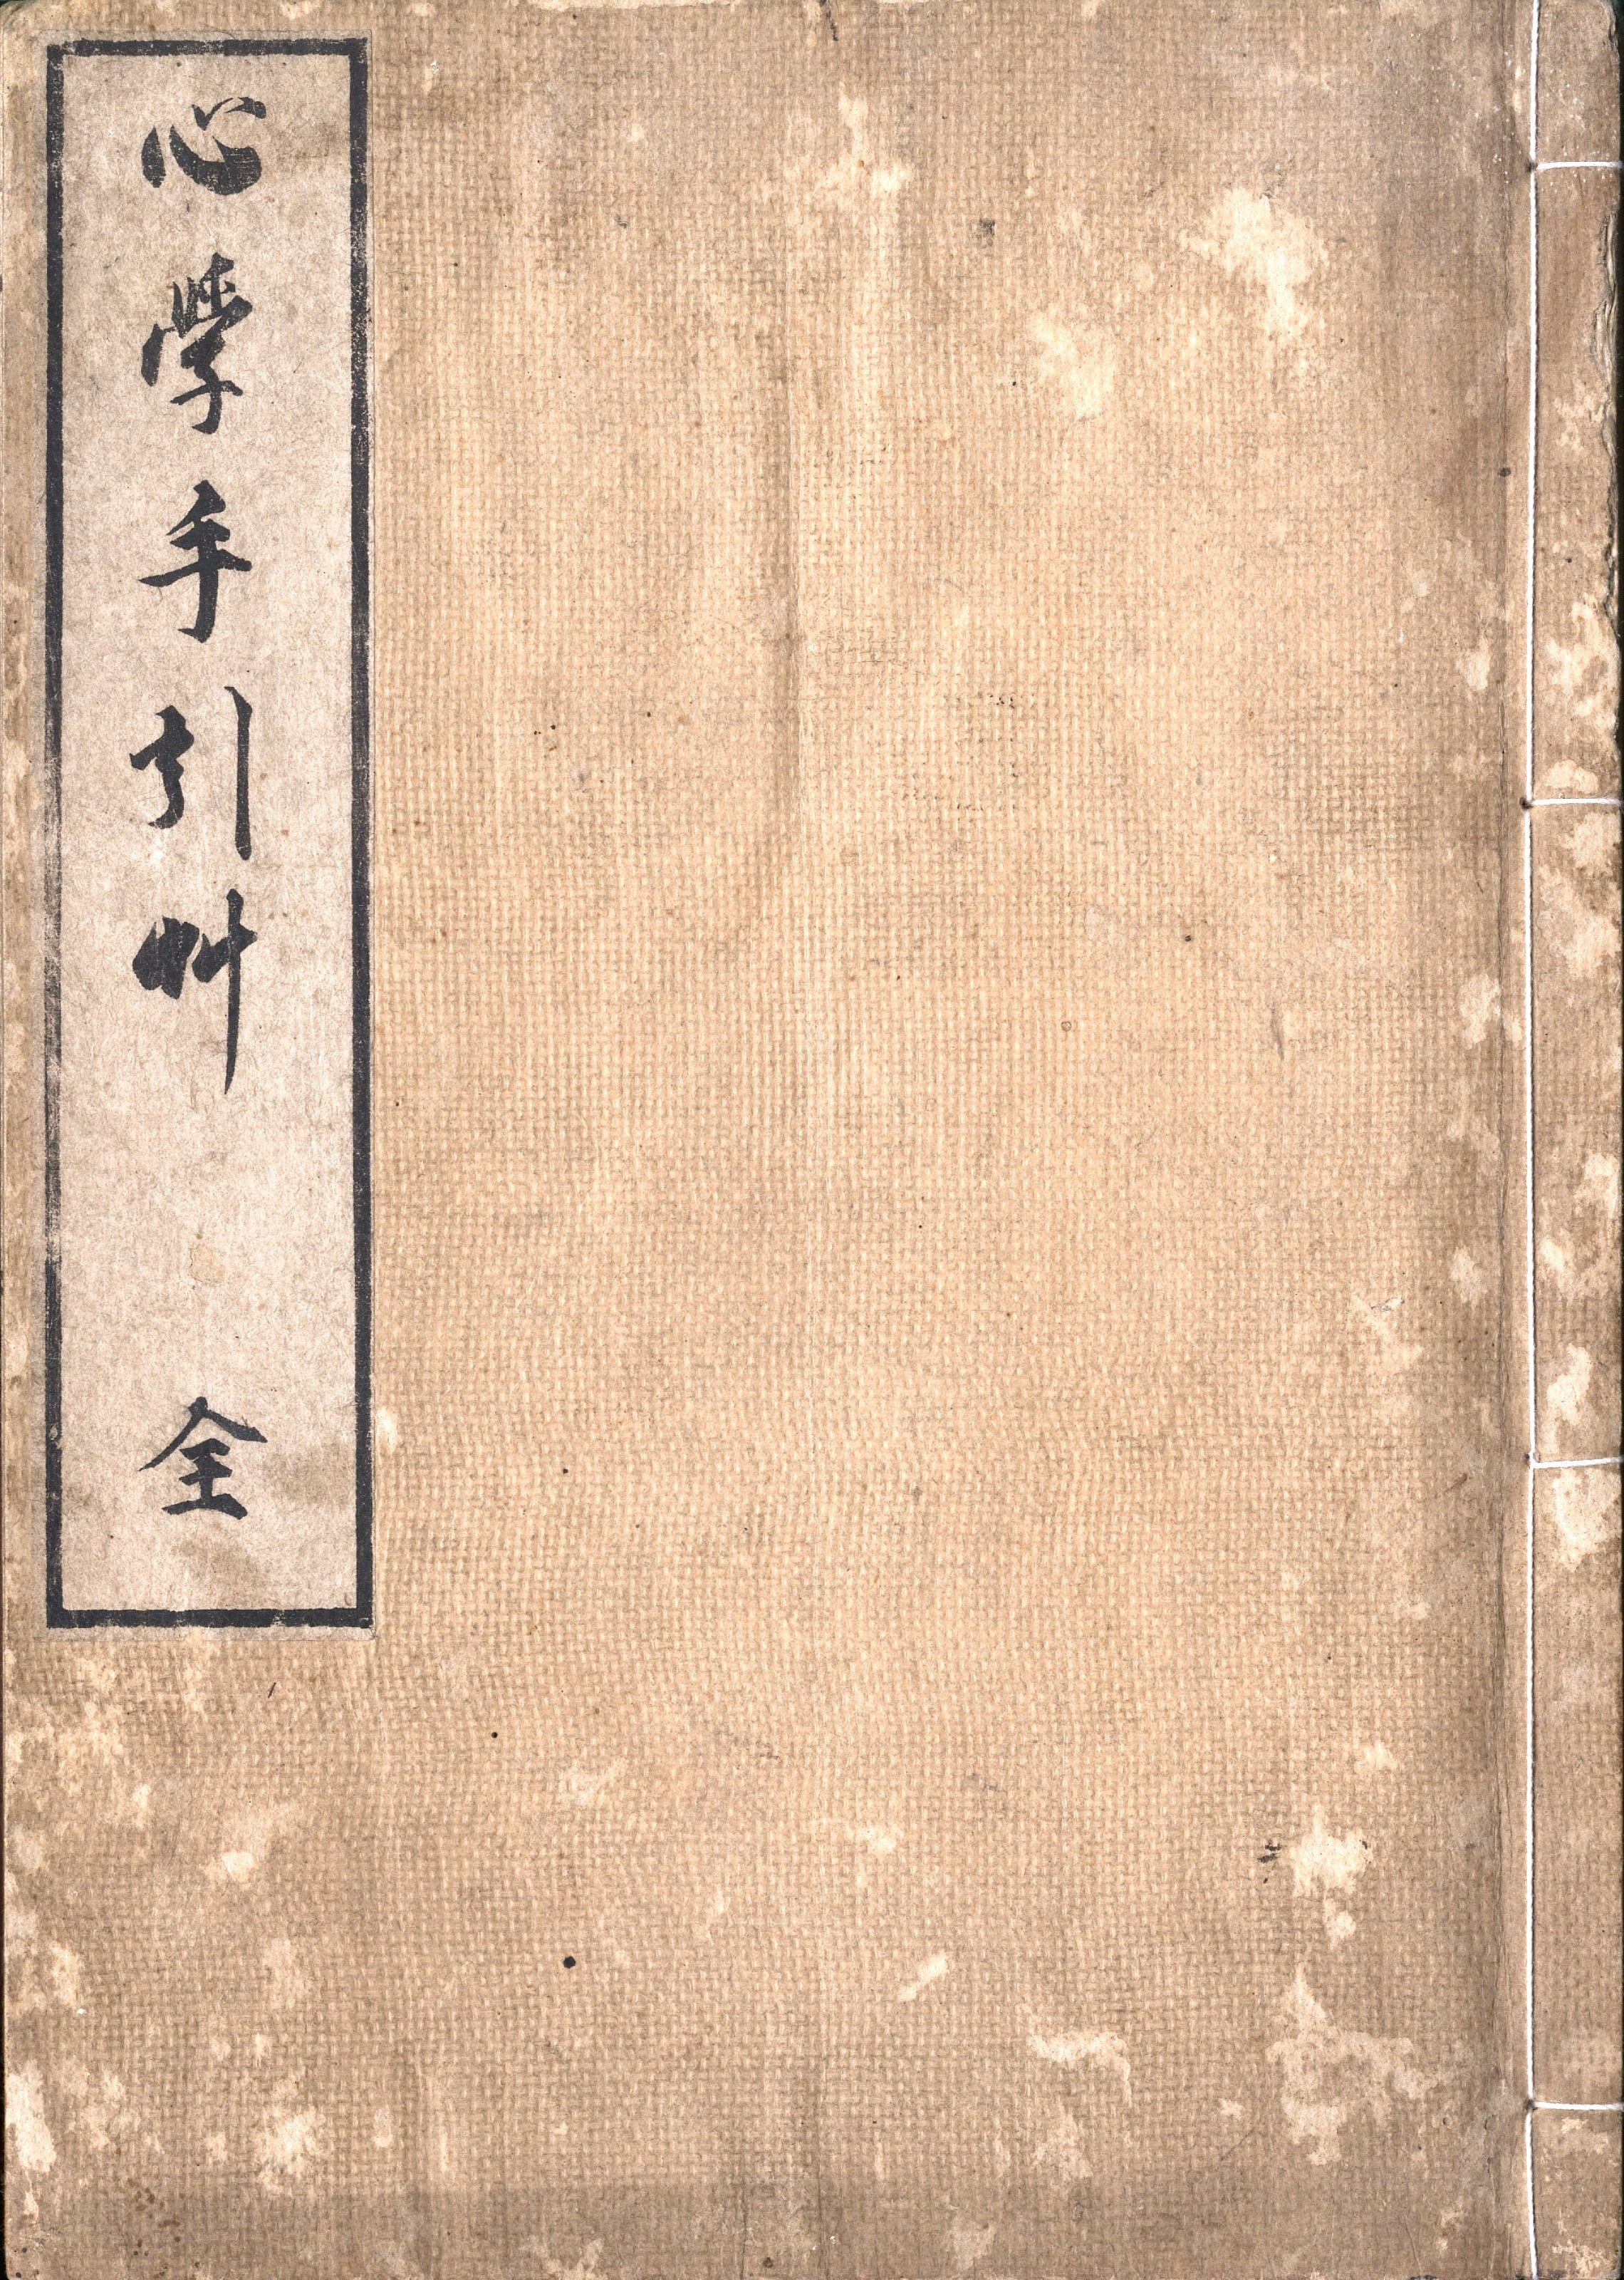 心學手引艸 全